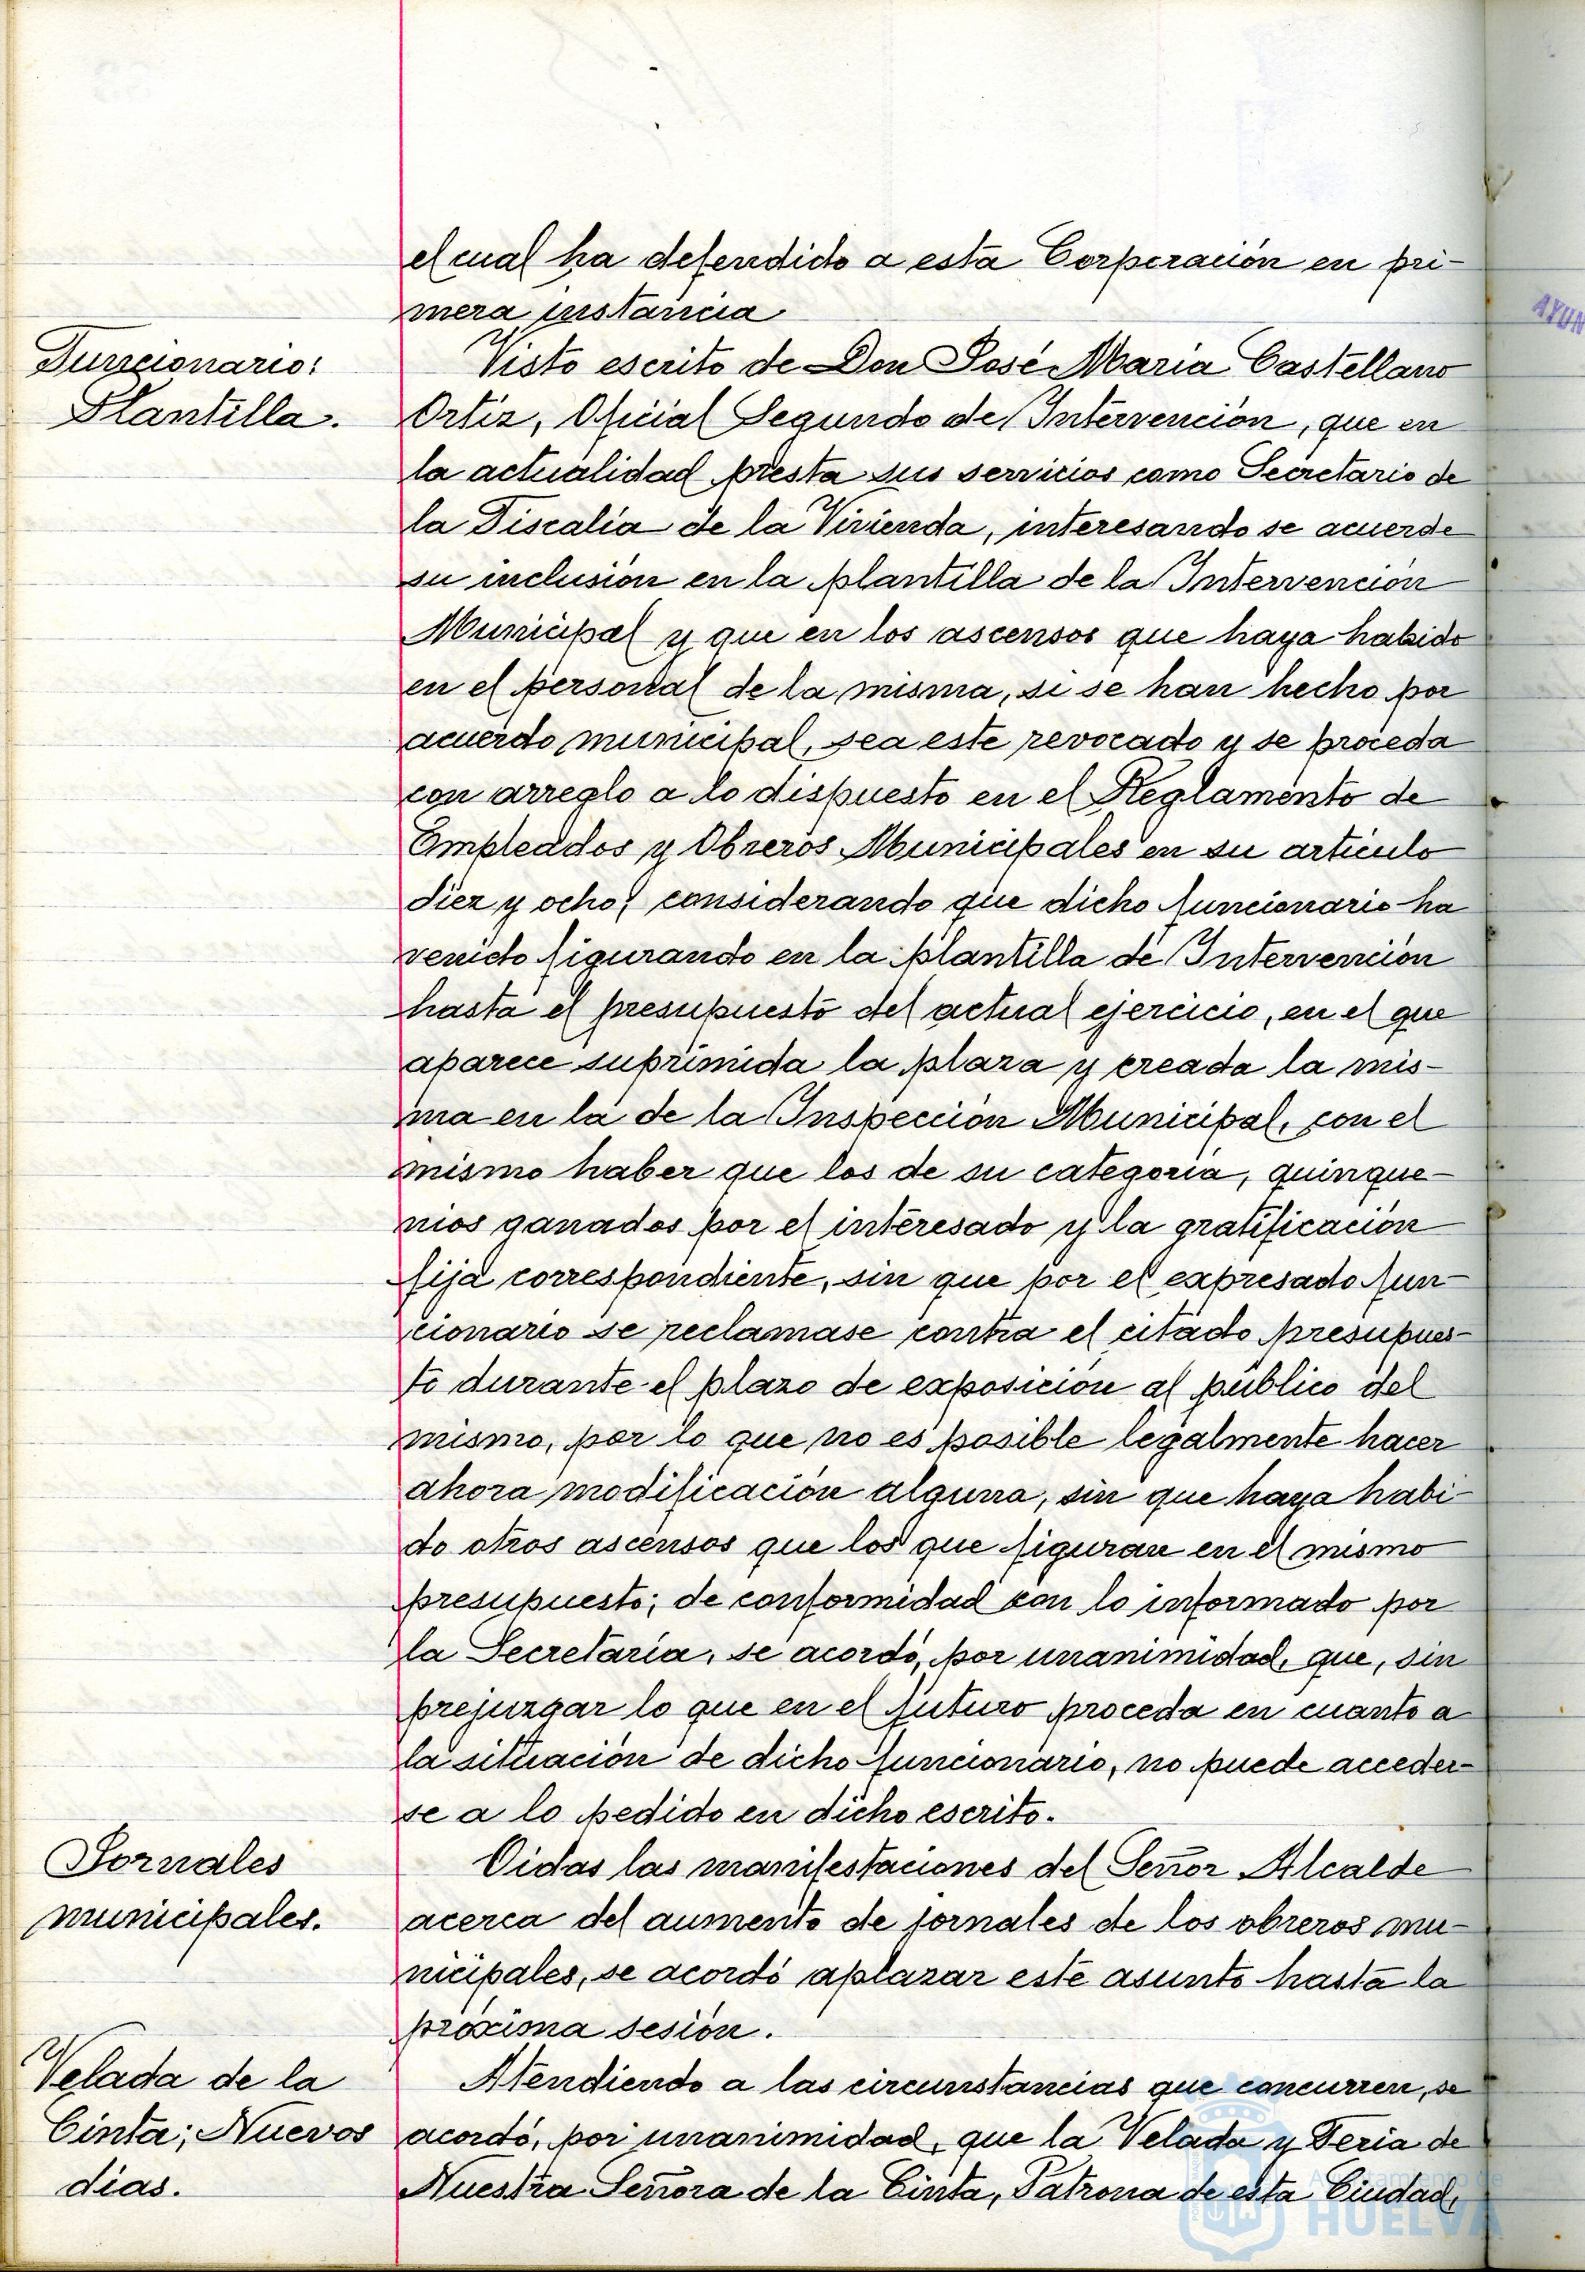 el cual ha defendido a esta Corporación en pri-
mera instancia
Funcionario:
Plantilla.
Visto escrito de Don José María Castellano
Ortiz, Oficial Segundo de Intervención, que en
la actualidad presta sus servicios como Secretario de
la Fiscalía de la Vivienda, interesando se acuerde
su inclusión en la plantilla de la Intervención
Municipal y que en los ascensos que haya habido
en el personal de la misma, si se han hecho por
acuerdo municipal, sea este revocado y se proceda
con arreglo a lo dispuesto en el Reglamento de
Empleados y Obreros Municipales en su artículo
diez y ocho; considerando que dicho funcionario ha
venido figurando en la plantilla de Intervención
hasta el presupuesto del actual ejercicio, en el que
aparece suprimida la plaza y creada la mis-
ma en la de la Inspección Municipal, con el
mismo haber que los de su categoría, quinque-
nios ganados por el interesado y la gratificación
fija correspondiente, sin que por el expresado fun-
cionario se reclamase contra el citado presupues-
to durante el plazo de exposición al público del
mismo, por lo que no es posible legalmente hacer
ahora modificación alguna, sin que haya habi-
do otros ascensos que los que figuran en el mismo
presupuesto; de conformidad con lo informado por
la Secretaría, se acordó, por unanimidad, que, sin
prejuzgar lo que en el futuro proceda en cuanto a
la situación de dicho funcionario, no puede acceder-
se a lo pedido en dicho escrito.
Jornales
municipales.
Oidas las manifestaciones del Señor Alcalde
acerca del aumento de jornales de los obreros mu-
nicipales, se acordó aplazar este asunto hasta la
próxima sesión.
Velada de la
Cinta; Nuevos
dias.
Atendiendo a las circunstancias que concurren, se
acordó, por unanimidad, que la Velada y Feria de
Nuestra Señora de la Cinta, Patrona de esta Ciudad,
AYUN
Ayuntamiento de
HUELVA